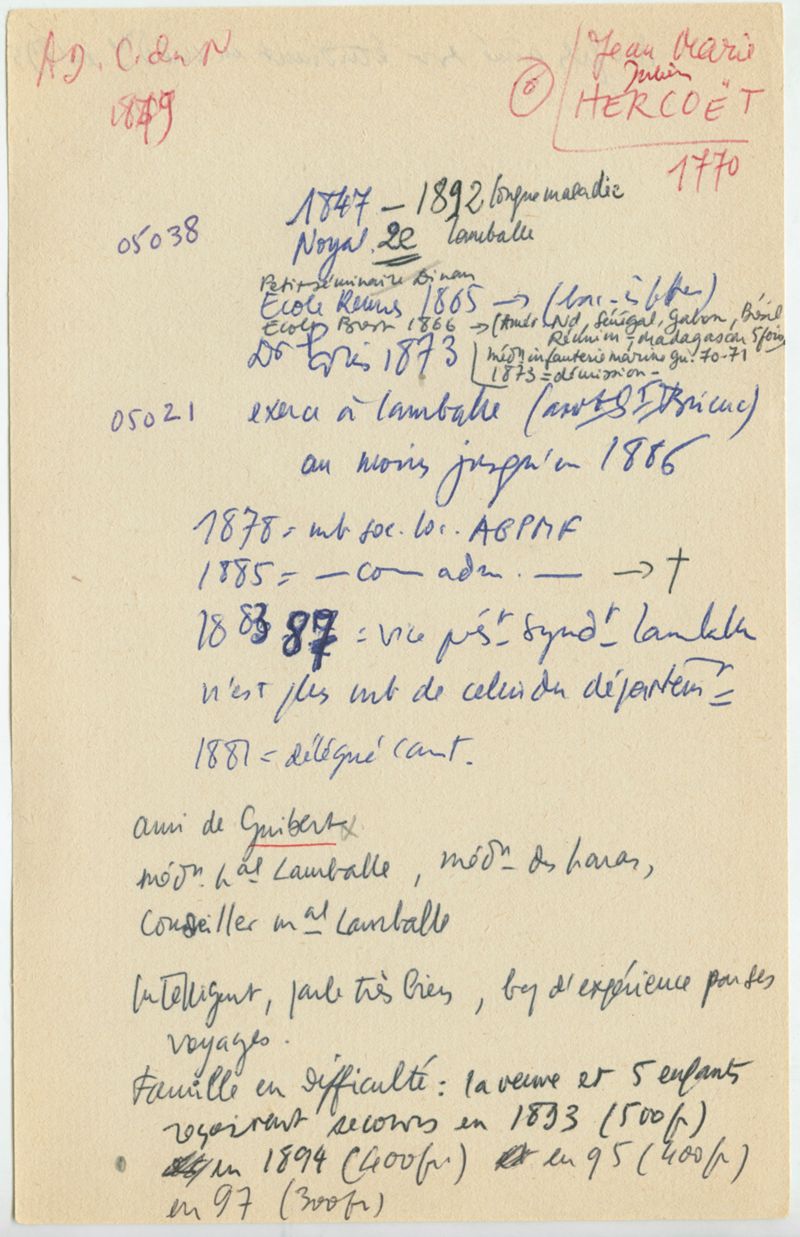 AD. C. du N
1879
Jean Marie
Julien
⑥ HERCOËT
1770
1847 – 1892 longue maladie
05038 Noyal. 2e Lamballe
Petit séminaire Dinan
Ecole Rennes 1865 → (bac. ès lettres)
Ecole Brest 1866 → (Amér. Nd, Sénégal, Gabon, Brésil
Réunion = Madagascar 5 fois
Dr Paris 1873 médn infanterie marine gu. 70-71
1873 = démission –
05021 exerce à Lamballe (arrdt St Brieuc)
au moins jusqu'en 1886
1878 = mb soc. loc. AGPMF
1885 = — com adm. — → †
1883 87 = vice prést syndt Lamballe
n'est plus mb de celui du départemt =
1881 = délégué cant.
ami de Guibert x
médn hal Lamballe, médn des haras,
Conseiller mal Lamballe
Intelligent, parle très bien, bcp d'expérience par ses
voyages.
Famille en difficulté : la veuve et 5 enfants
reçoivent secours en 1893 (500fr)
en 1894 (400fr) en 95 (400fr)
en 97 (300fr)